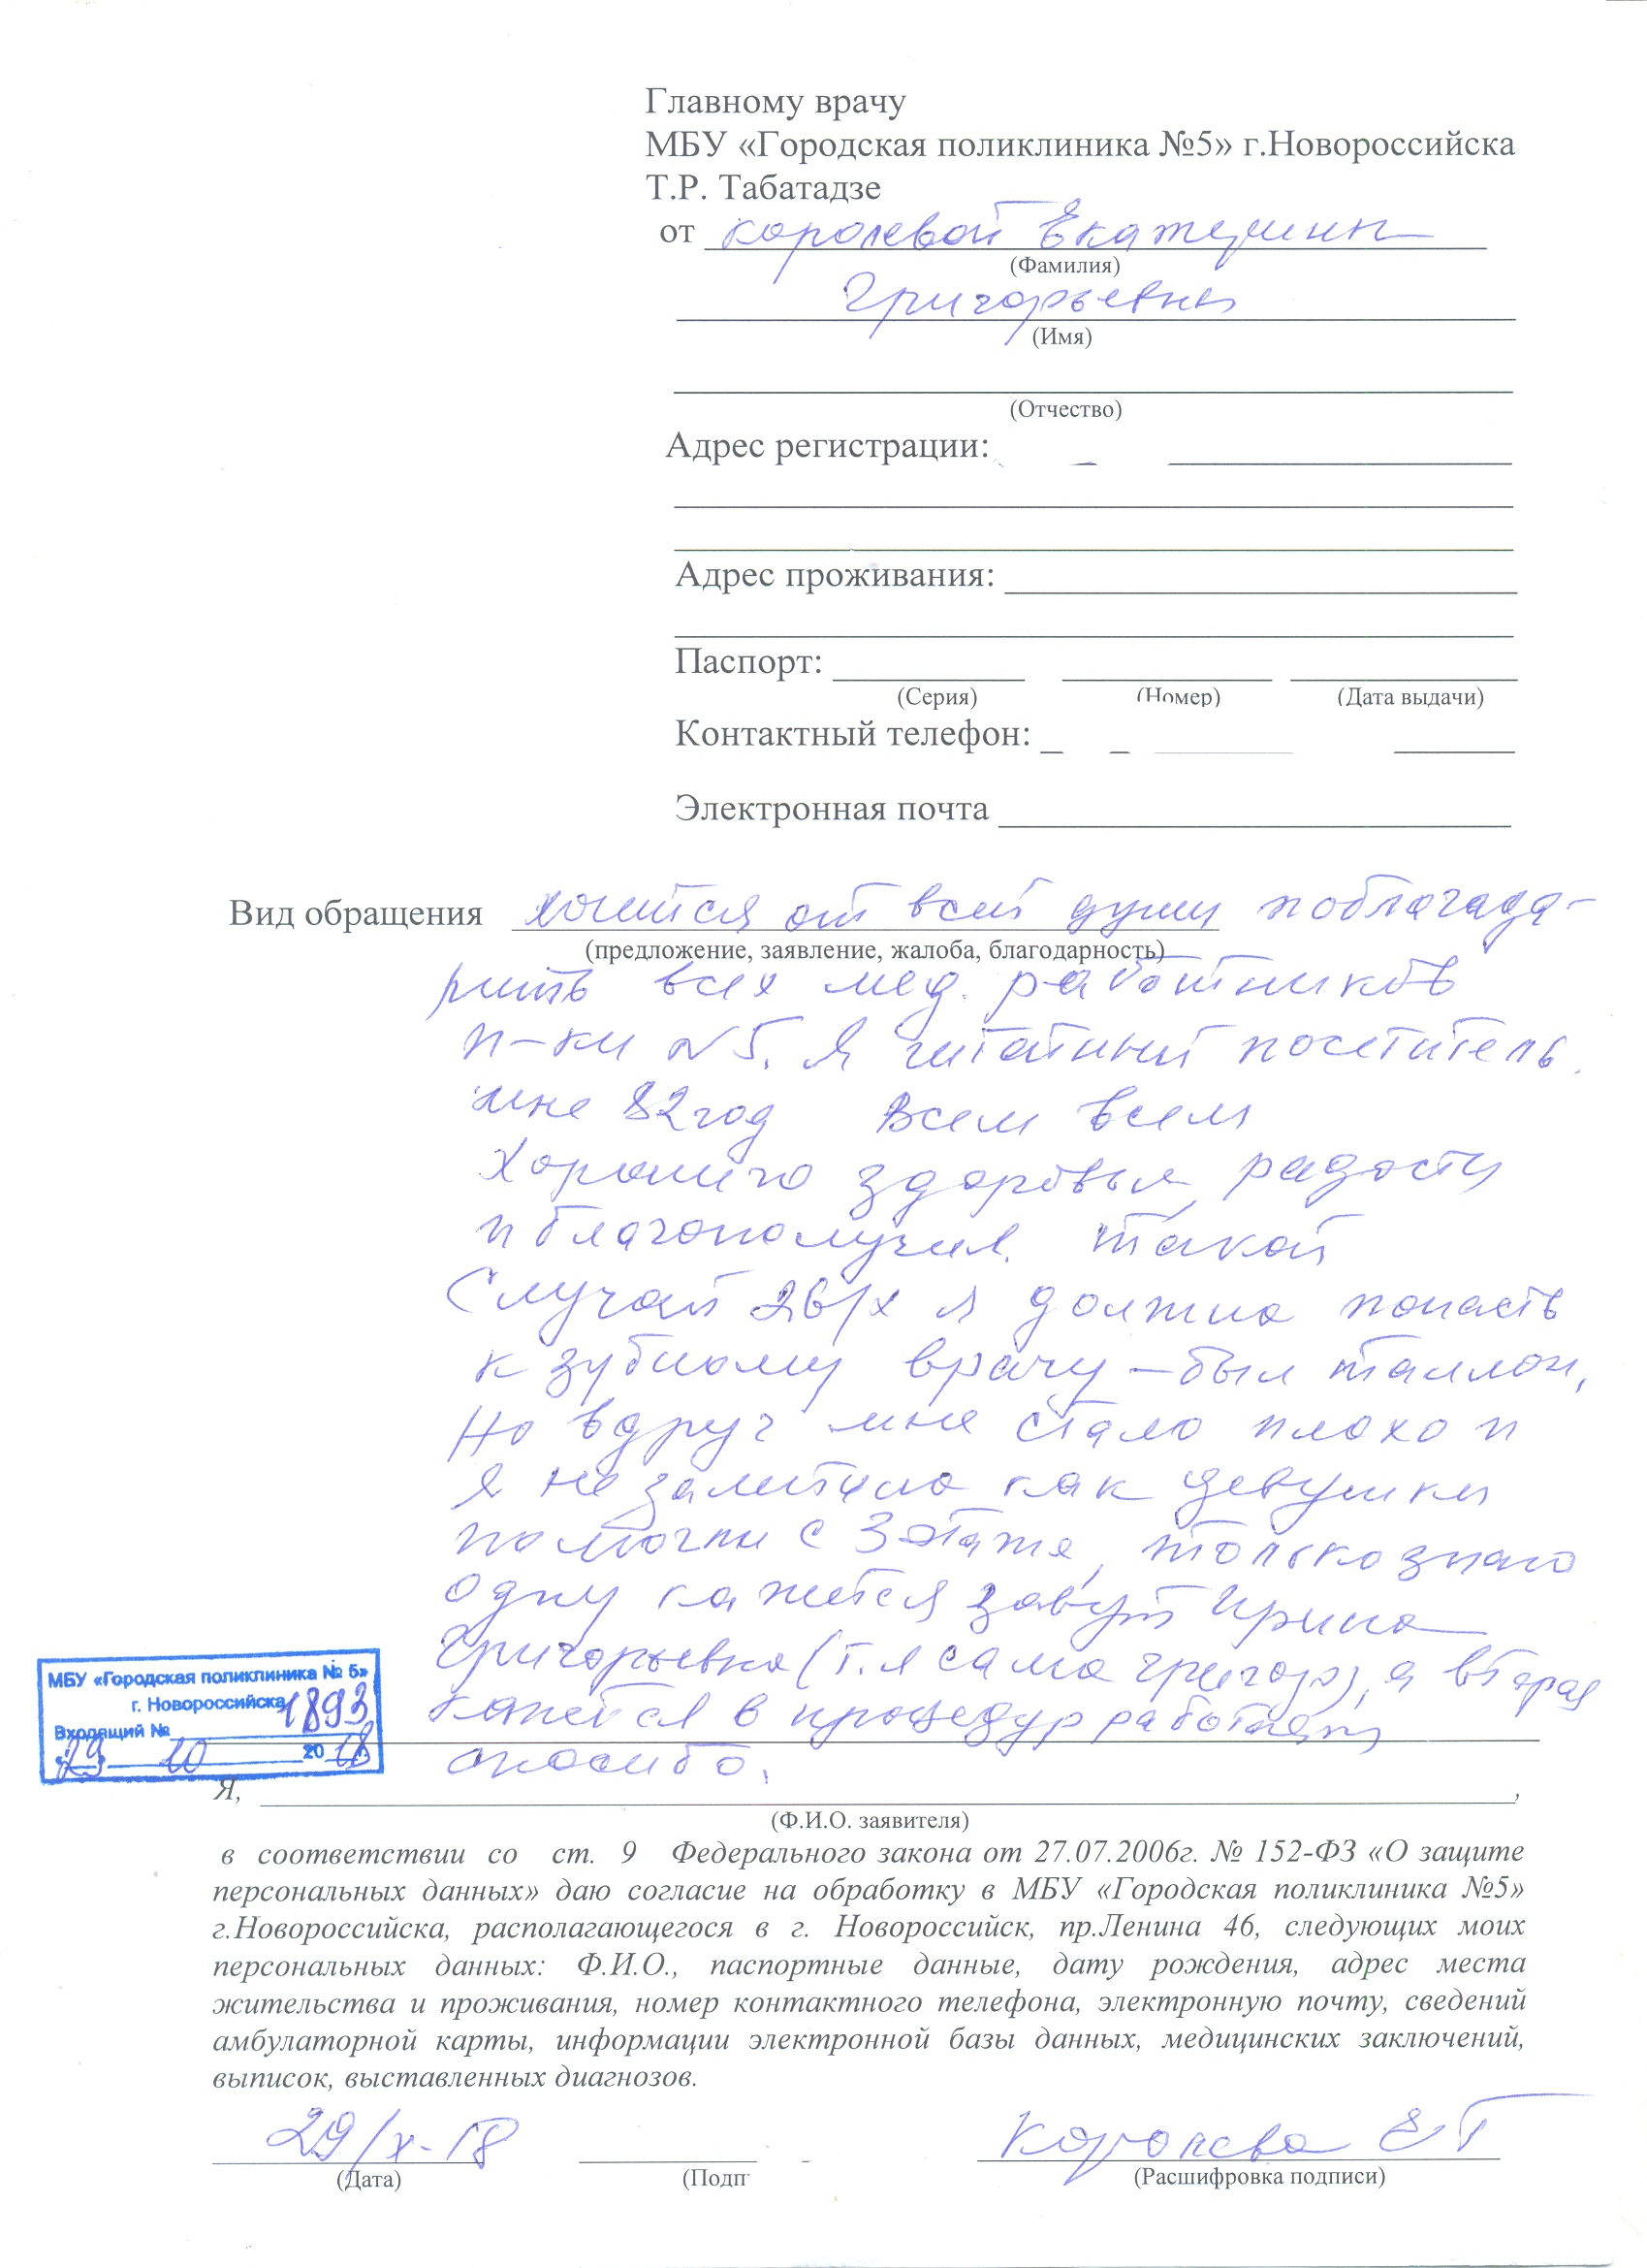 Главному врачу
МБУ «Городская поликлиника №5» г.Новороссийска
Т.Р. Табатадзе
от Королевой Екатерины
(Фамилия)
Григорьевны
(Имя)
(Отчество)
Адрес регистрации:
Адрес проживания:
Паспорт:
(Серия) (Номер) (Дата выдачи)
Контактный телефон:
Электронная почта
Вид обращения хочется от всей души поблагода-
(предложение, заявление, жалоба, благодарность)
рить всех мед. работников
п-ки №5. Я посетитель.
мне 82 год Всем всем
хорошего здоровья, радости
и благополучия. Такой
Случай 26/X я должна попасть
к зубному врачу – был таллон,
Но вдруг мне стало плохо и
я не заметила как девушки
помогли с 3 этажа, только знаю
одну кажется зовут Ирина
Григорьевна (т.я сама григор), а вторая
кажется в процедур работает
спасибо.
МБУ «Городская поликлиника № 5»
г. Новороссийска
Входящий № 1893
29 10 2018
Я, ,
(Ф.И.О. заявителя)
в соответствии со ст. 9 Федерального закона от 27.07.2006г. № 152-ФЗ «О защите
персональных данных» даю согласие на обработку в МБУ «Городская поликлиника №5»
г.Новороссийска, располагающегося в г. Новороссийск, пр.Ленина 46, следующих моих
персональных данных: Ф.И.О., паспортные данные, дату рождения, адрес места
жительства и проживания, номер контактного телефона, электронную почту, сведений
амбулаторной карты, информации электронной базы данных, медицинских заключений,
выписок, выставленных диагнозов.
29/X-18 Королева ЕГ
(Дата) (Подп (Расшифровка подписи)